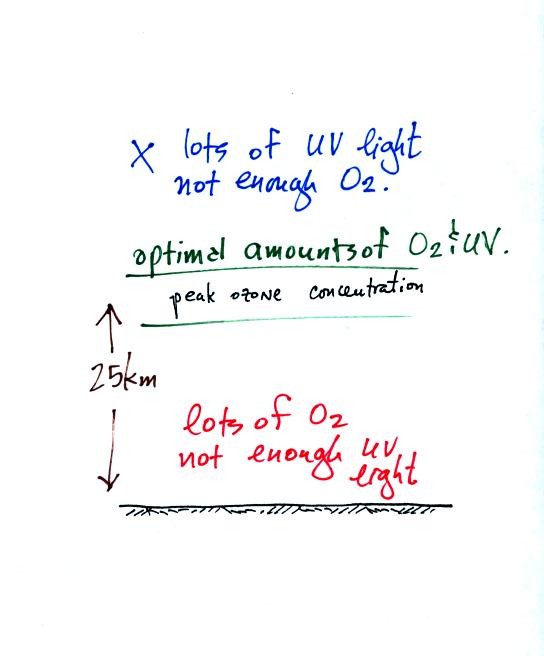 X lots of UV light
not enough O2.
optimal amounts of O2 & UV.
peak ozone concentration
25km
lots of O2
not enough UV
light